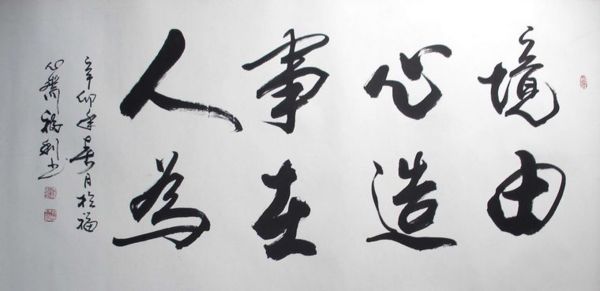 境由
心造
事在
人為
辛卯年春月於福